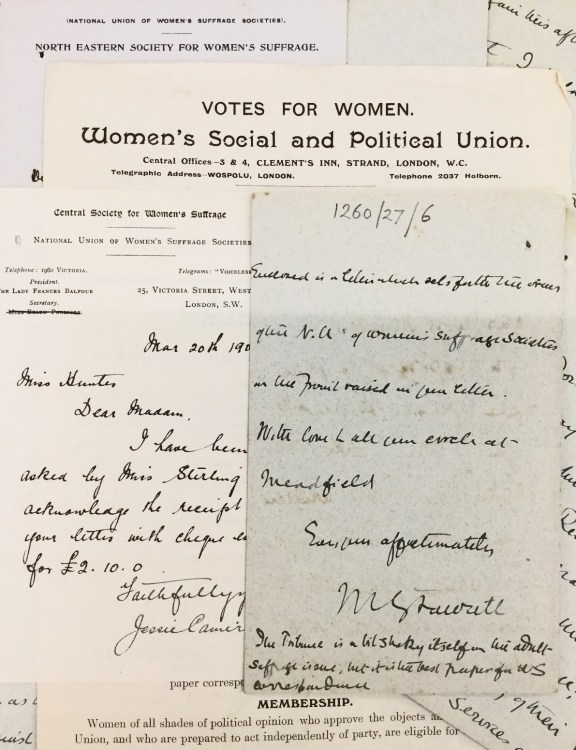 (NATIONAL UNION OF WOMEN'S SUFFRAGE SOCIETIES).
NORTH EASTERN SOCIETY FOR WOMEN'S SUFFRAGE.
VOTES FOR WOMEN.
Women's Social and Political Union.
Central Offices—3 & 4, CLEMENT'S INN, STRAND, LONDON, W.C.
Telegraphic Address—WOSPOLU, LONDON.
Telephone 2037 Holborn.
Central Society for Women's Suffrage
NATIONAL UNION OF WOMEN'S SUFFRAGE SOCIETIES
Telephone: 1960 VICTORIA.
Telegrams: "VOICELESS
President.
THE LADY FRANCES BALFOUR
Secretary.
25, VICTORIA STREET, WEST
LONDON, S.W.
Mar 20th 190
Miss Hunter
Dear Madam,
I have been
asked by Miss Stirling
acknowledge the receipt
your letter with cheque
for £2.10.0
Faithfully
Jessie
1260/27/6
Enclosed is a letter which sets forth the views
of the N.U. of Women's Suffrage Societies
on the point raised in your letter.
With love to all your circle at
Meadfield
Ever yours affectionately
M G Fawcett
The Tribune is a bit shaky itself on the adult
suffrage issue, but it is the best paper for WS
correspondence
paper corresp
MEMBERSHIP.
Women of all shades of political opinion who approve the objects
Union, and who are prepared to act independently of party, are eligible for